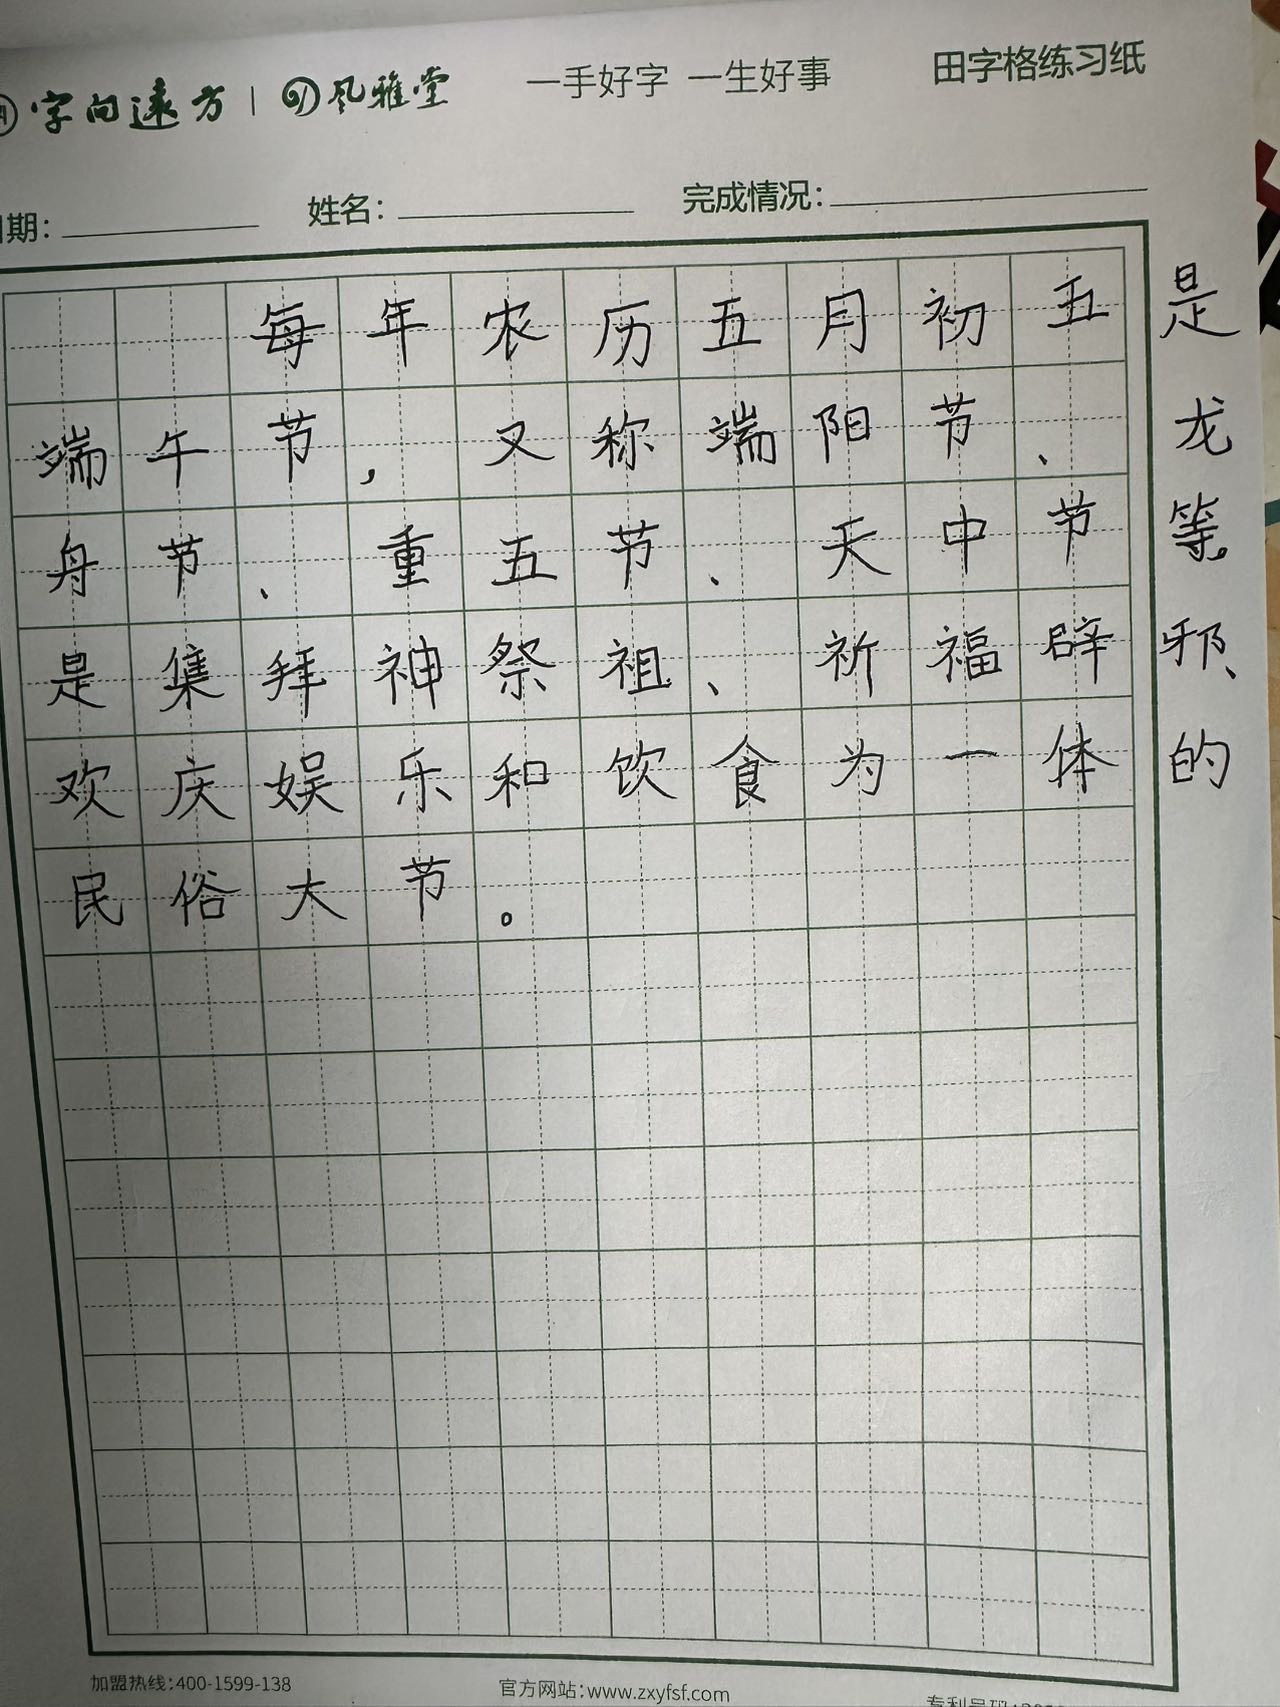 字向远方 | 风雅堂 一手好字 一生好事 田字格练习纸
期: 姓名: 完成情况:
每年农历五月初五是
端午节,又称端阳节、龙
舟节、重五节、天中节等,
是集拜神祭祖、祈福辟邪、
欢庆娱乐和饮食为一体的
民俗大节。
加盟热线:400-1599-138 官方网站:www.zxyfsf.com